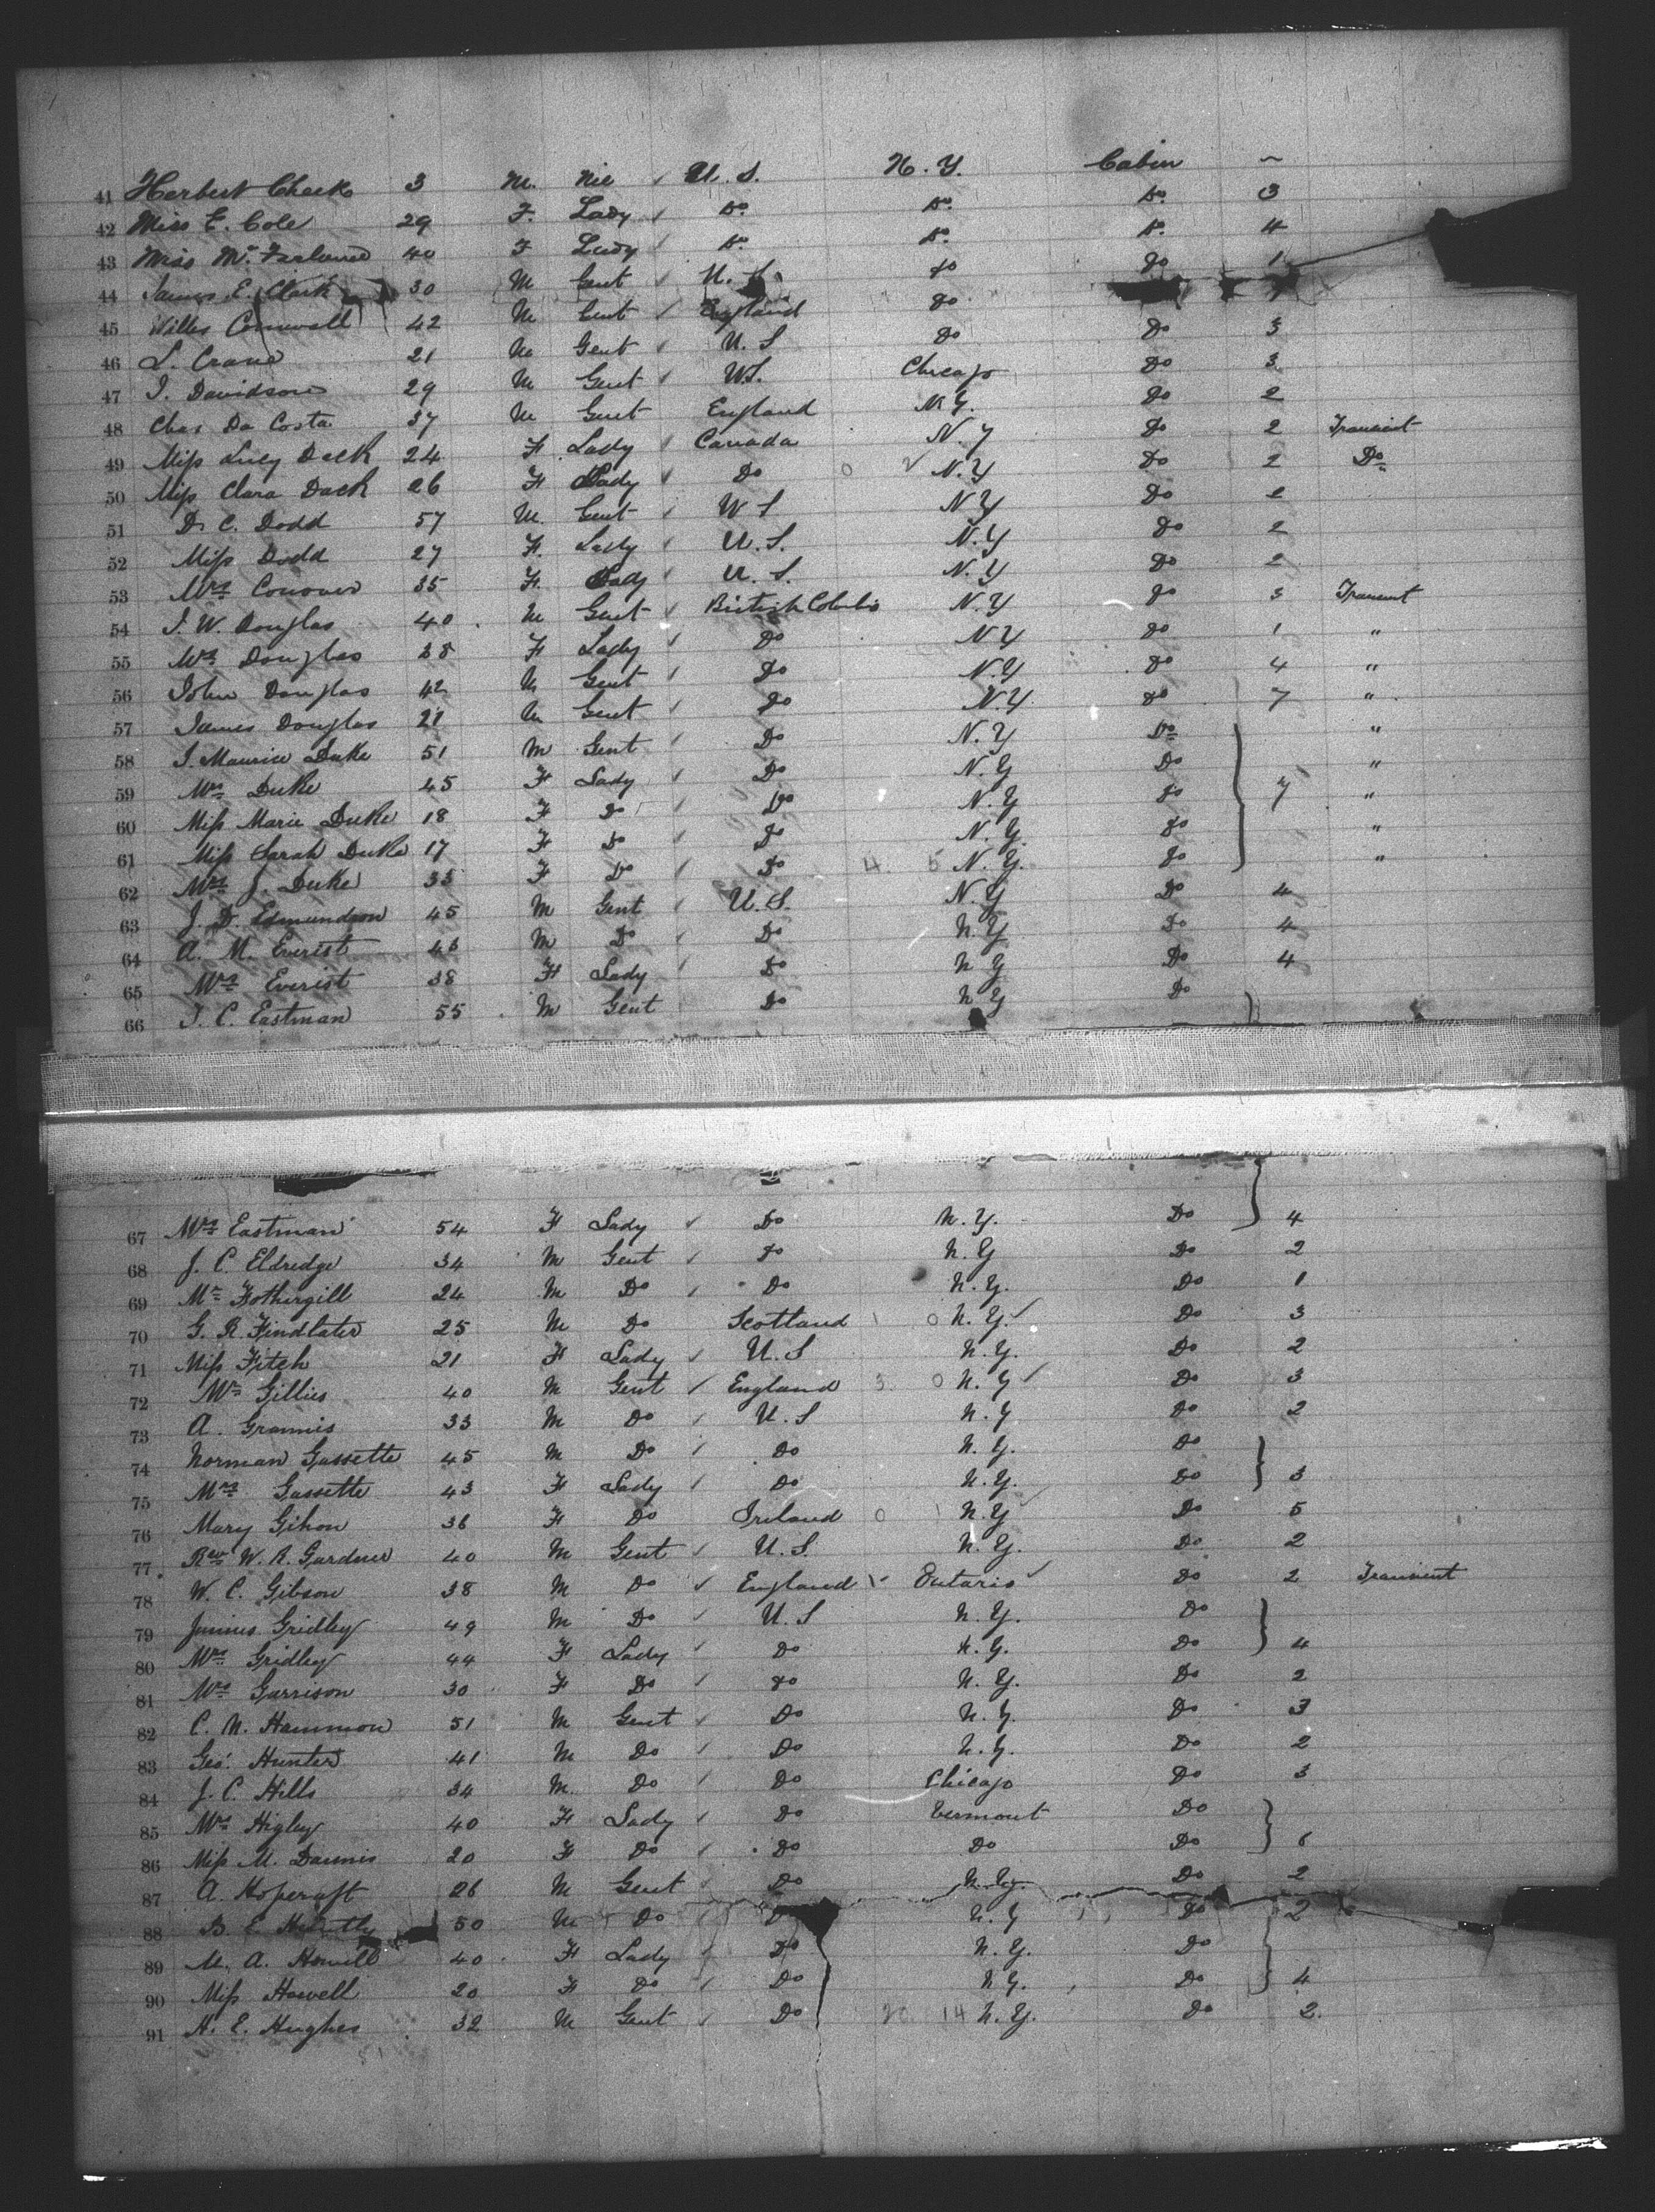 41 Herbert Cheek 3 M. Nil U. S. N. Y. Cabin ~
42 Miss E. Cole 29 F. Lady Do. Do. Do. 3
43 Miss 40 F Lady Do. Do. Do. 4
44 James E. Clark 30 M Gent U. S. Do Do 1
45 Willes Cornwall 42 M Gent England Do
46 L. Crane 21 M Gent U. S Do Do 3
47 J. Davidson 29 M Gent U.S. Chicago Do 3
48 Chas Da Costa 37 M Gent England N.Y. Do 2
49 Miss Lucy Dack 24 F. Lady Canada N. Y Do 2 Transient
50 Miss Clara Dack 26 F Lady Do 0 N. Y Do 2 Do
51 D. C. Dodd 57 M. Gent U S N Y Do 2
52 Miss Dodd 27 F. Lady U. S. N. Y Do 2
53 Mrs Conover 35 F. Lady U. S. N. Y Do 2
54 J. W. Douglas 40 M Gent British Columbia N. Y Do 3 Transient
55 Mrs Douglas 38 F Lady Do N Y Do 1 "
56 John Douglas 42 M Gent Do N. Y Do 4 "
57 James Douglas 21 M Gent Do N. Y. Do 7 "
58 J. Maurice Duke 51 M Gent Do N. Y Do "
59 Mrs Duke 45 F Lady Do N. Y Do "
60 Miss Marie Duke 18 F Do Do N. Y Do 7 "
61 Miss Sarah Duke 17 F Do Do N. Y. Do "
62 Mrs J. Duke 35 F Do Do 4. 5 N. Y. Do "
63 J. D. Edmundson 45 M Gent U. S. N. Y Do 4
64 A. M. Everist 46 M Do Do N. Y Do 4
65 Mrs Everist 38 F Lady Do N Y Do 4
66 J. C. Eastman 55 M Gent Do N Y Do
67 Mrs Eastman 54 F Lady Do N. Y. Do 4
68 J. C. Eldredge 34 M Gent Do N. Y Do 2
69 Mr Fothergill 24 M Do Do N. Y. Do 1
70 G. R. Findlater 25 M Do Scotland 1 0 N. Y. Do 3
71 Miss Fitch 21 F Lady U. S N. Y. Do 2
72 Mr Gillies 40 M Gent England 3. 0 N. Y Do 3
73 A. Grannis 33 M Do U. S N. Y Do 2
74 Norman Gassette 45 M Do Do N. Y. Do
75 Mrs Gassette 43 F Lady Do N. Y. Do 3
76 Mary Gihon 36 F Do Ireland 0 1 N. Y Do 5
77 Rev W. R. Gardner 40 M Gent U. S. N. Y. Do 2
78 W. C. Gibson 38 M Do England Ontario Do 2 Transient
79 Junius Gridley 49 M Do U. S N. Y. Do
80 Mrs Gridley 44 F Lady Do N. Y. Do 4
81 Mrs Garrison 30 F Do Do N. Y. Do 2
82 C. N. Hammon 51 M Gent Do N. Y. Do 3
83 Geo. Hunter 41 M Do Do N. Y. Do 2
84 J. C. Hills 34 M. Do Do Chicago Do 3
85 Mrs Higley 40 F Lady Do Vermont Do
86 Miss M. Dannis 20 F Do Do Do Do 6
87 A. Hopcraft 26 M Gent Do N. Y. Do 2
88 B. E. Huntly 50 M Do D N. Y Do 2
89 M. A. Howell 40 F Lady Do N. Y. Do
90 Miss Howell 20 F Do Do N Y. Do 4
91 H. E. Hughes 32 M Gent Do 20 14 N. Y. Do 2.